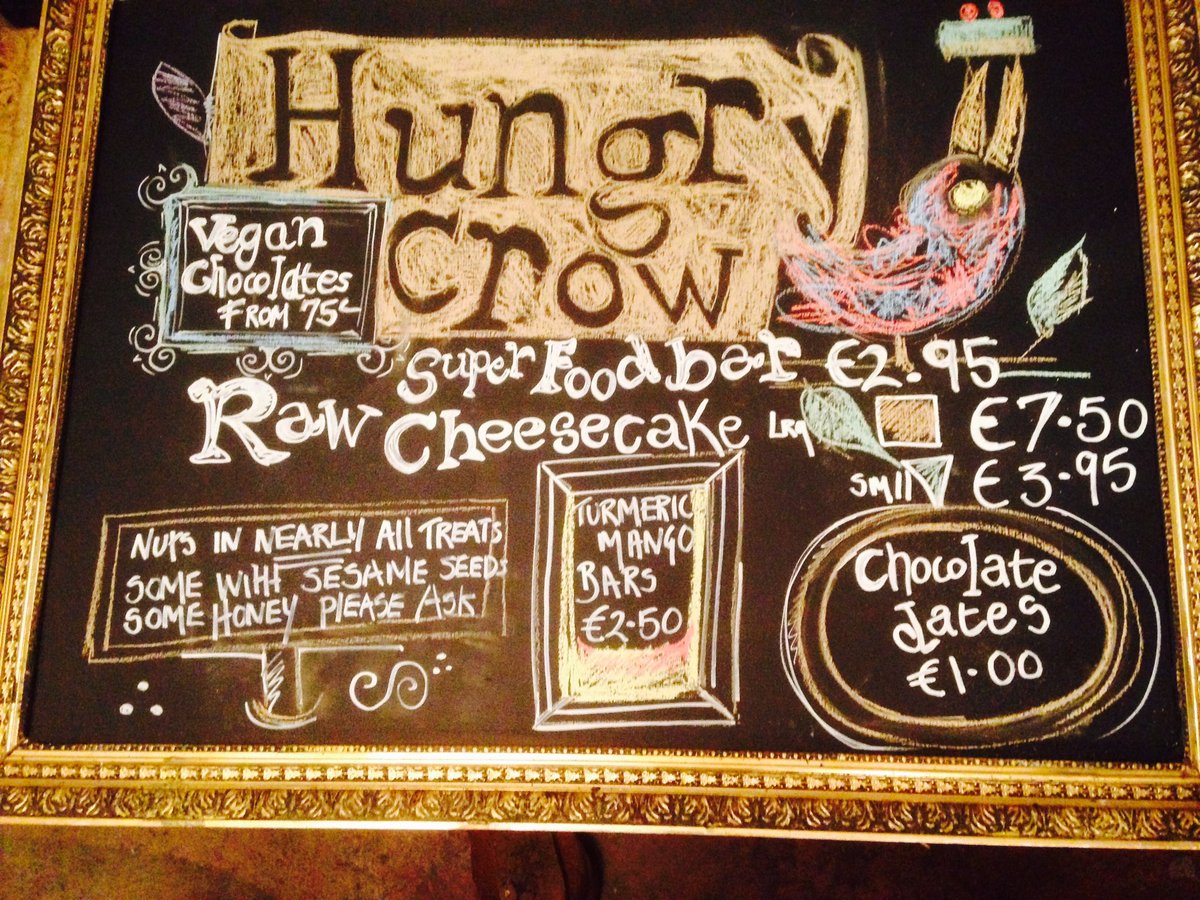 Hungry
Crow
Vegan
Chocolates
FROM 75c
Super Food bar €2.95
Raw Cheesecake Lrg €7.50
smll €3.95
NUTS IN NEARLY All TREATS
SOME WIHT SESAME SEEDS
SOME HONEY PLEASE ASK
TURMERIC
MANGO
BARS
€2.50
Chocolate
dates
€1.00